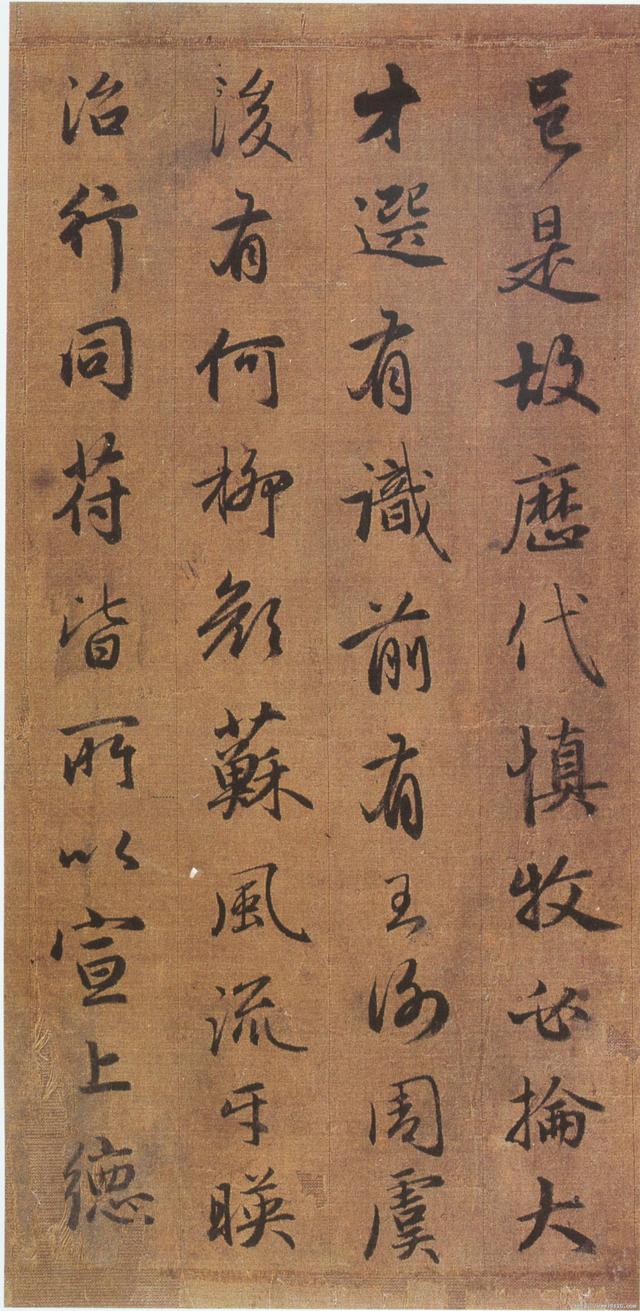 邑是故歴代慎牧必掄大
才選有識前有王謝周虞
後有何柳顔蘇風流互暎
治行同苻皆所以宣上德